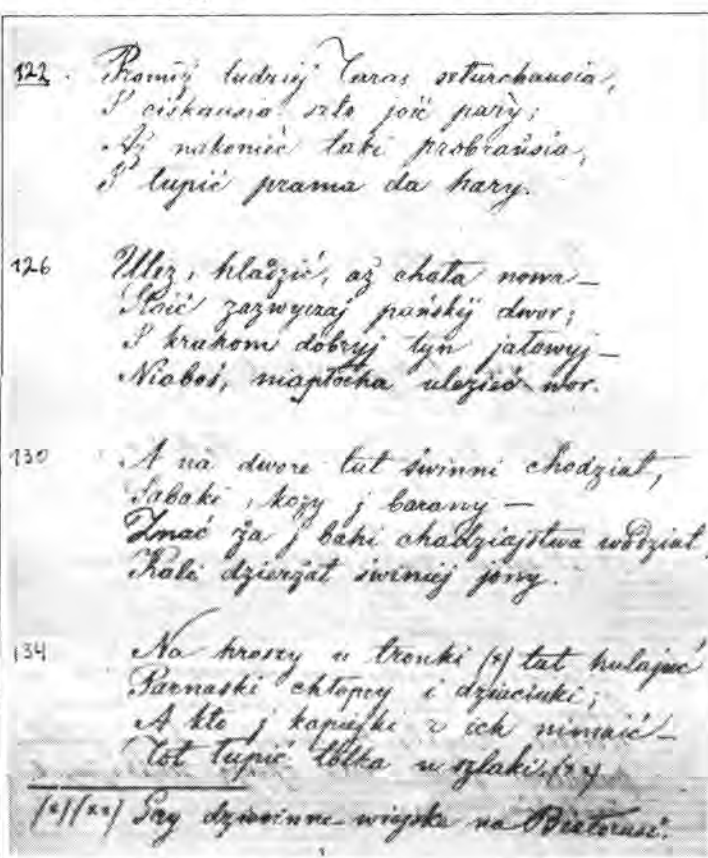 122. Promiż ludziej Taras szturchausia,
I ciskausia szto jość pary;
Aż nakonieć taki probrausia,
I lupić prama da hary.
126 Ulez, hladzić, aż chata nowa—
Stoić zazwyczaj pańskij dwor;
I krahom dobryj tyn jałowyj—
Niaboś, niapłocha ulezieć wor.
130 A na dwore tut świnni chodziat,
Sabaki, kozy j barany—
Znać ża j bahi chadziajstwa wodziat,
Kali dzierżat świniej jany.
134 Na hroszy u tronki (x) tut hulajuć
Parnaski chłopcy i dzieciuki;
A kto j kapiejki z ich nimaić—
Tot lupić tolka u szlaki. (xx)
(x)(xx) Gry dziecinne wiejskie na Białorusi.